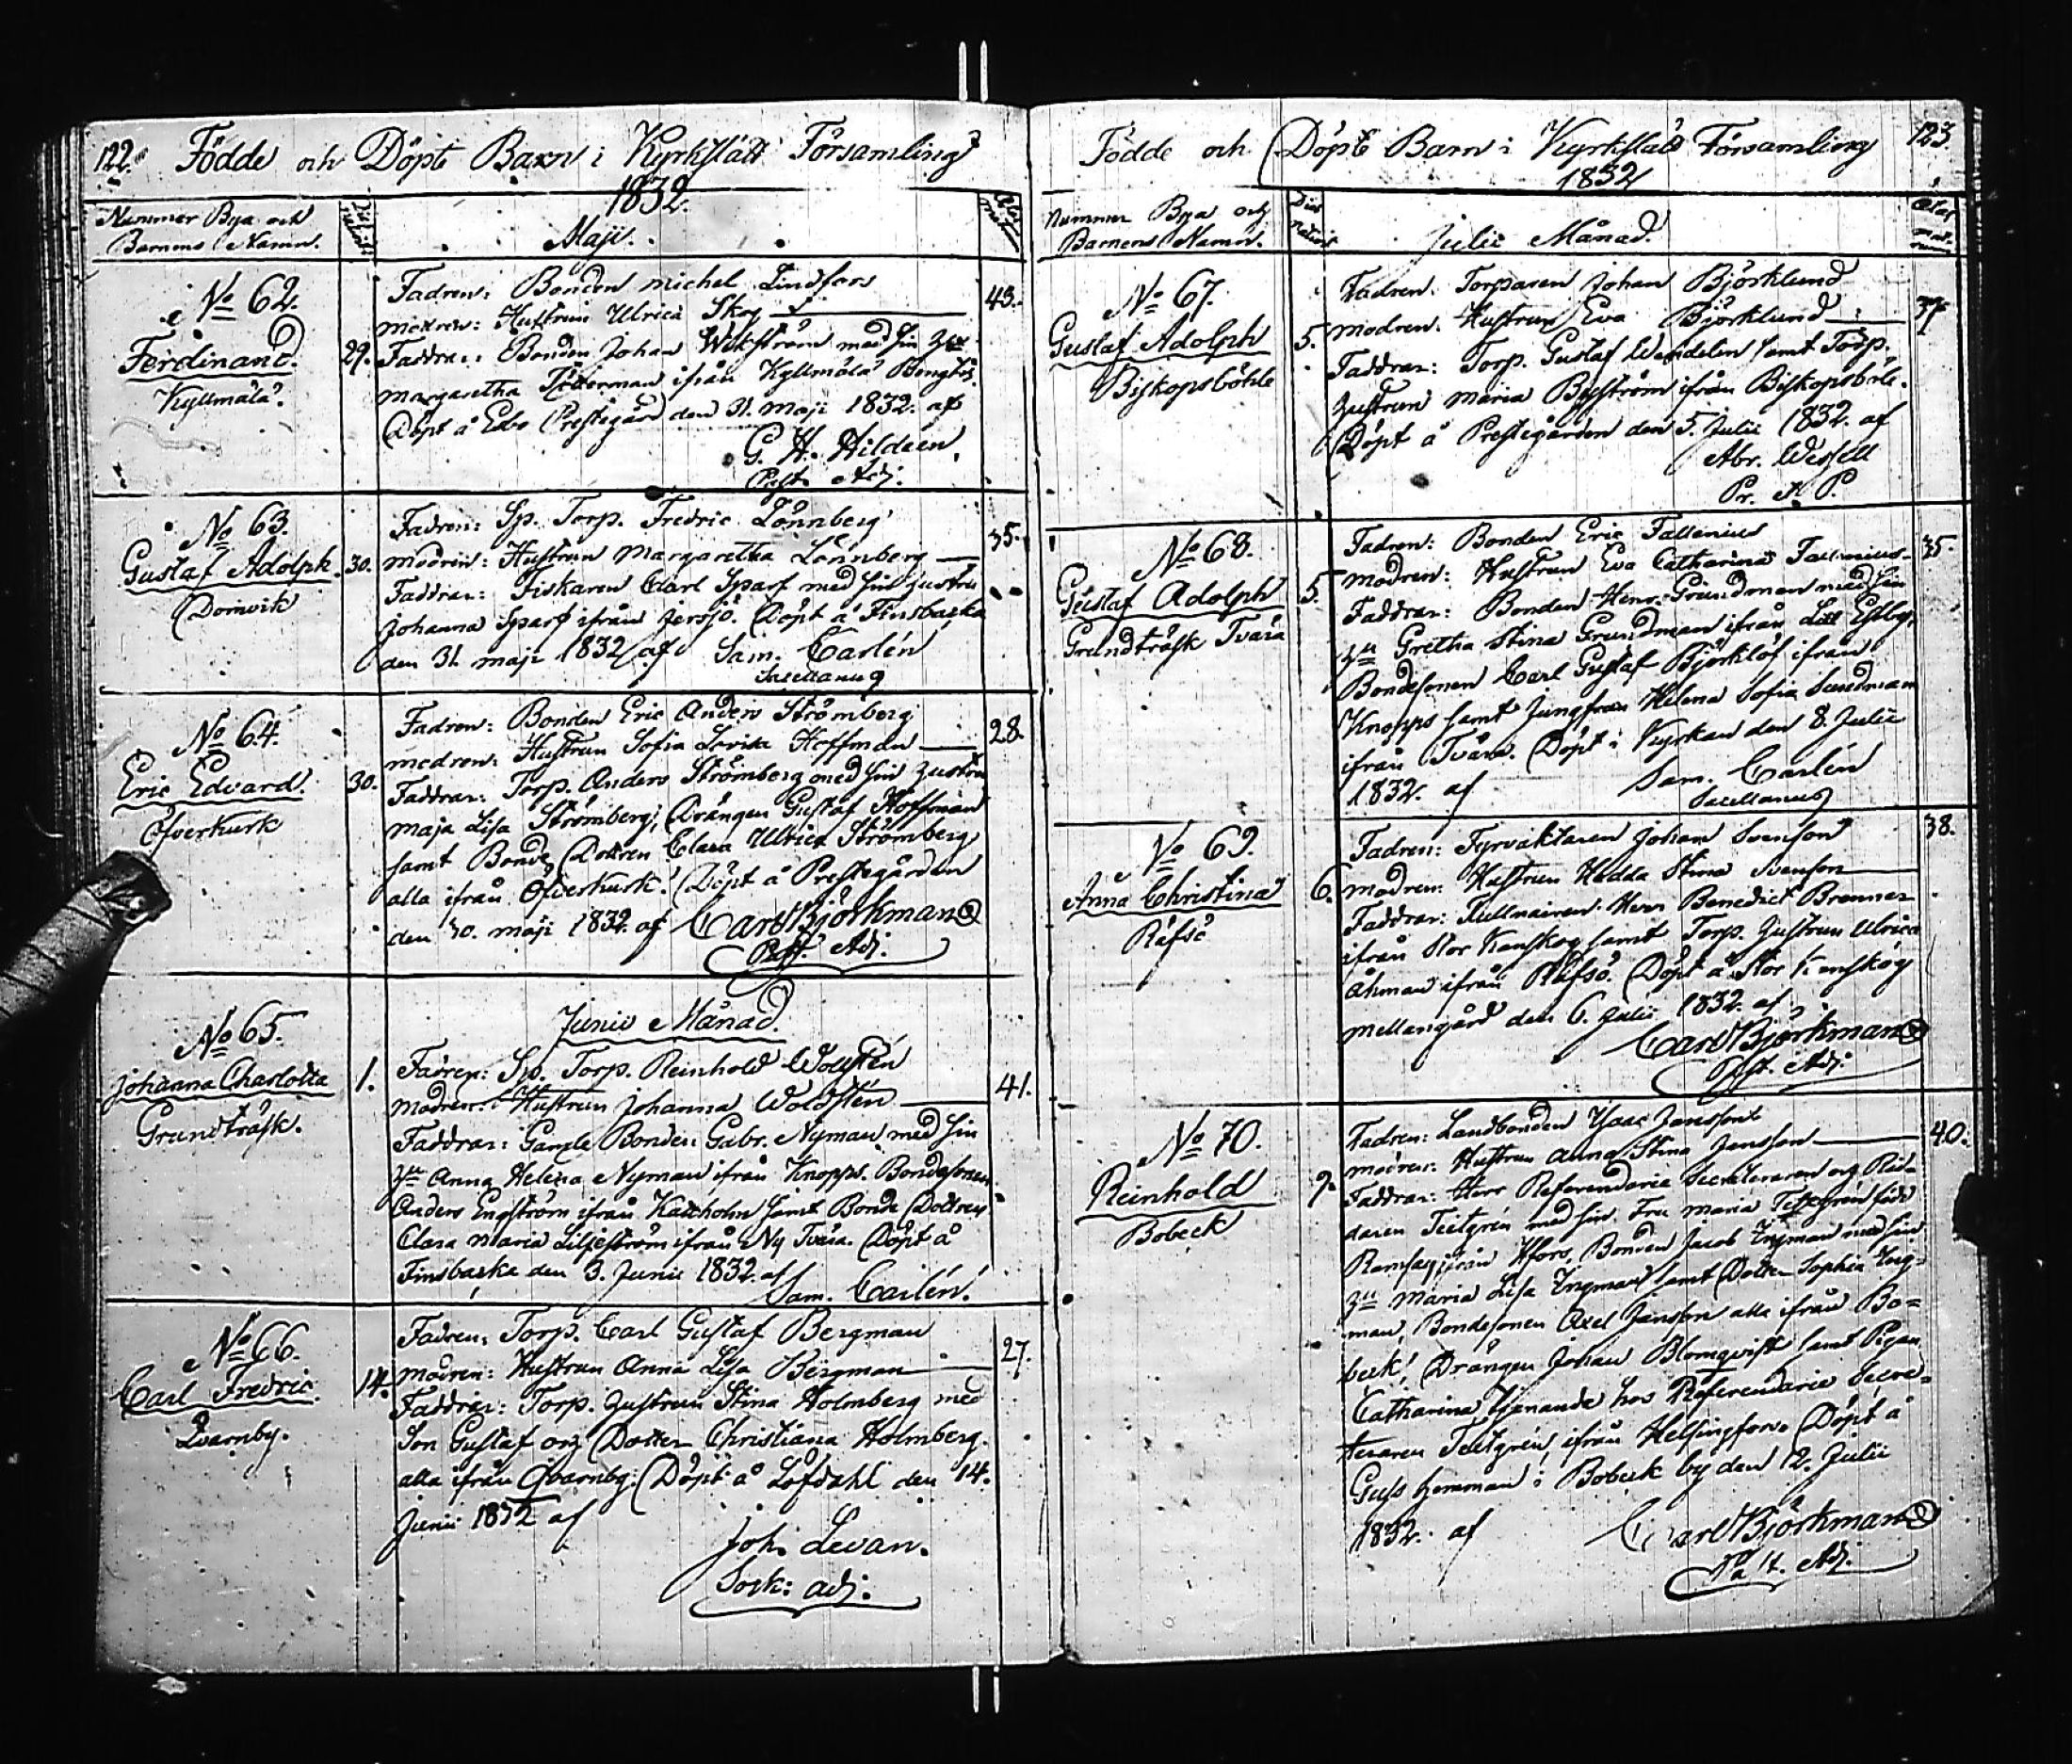 122. Födde och Döpte Barn i Kyrkslätt Församling
1832.
Nummer Bya och
Barnens Namn.
Maji.
No 62.
Ferdinand.
Kyllmälä.
29.
Fadren: Bonden Michel Lindfors
Modren: Hustrun Ulrica Skog
43.
Faddrar: Bonden Johan Wikström med sin
Margaretha ifrån Kyllmälä
Döpt å Esbo Prestegård den 31. Maji 1832. af
G. H. Hildeen.
Past. Adj.
No 63.
Gustaf Adolph.
Domvik
30.
Fadren: Sp. Torp. Fredric Lönnberg
Modren: Hustrun Margaretha Lönnberg
35.
Faddrar: Fiskaren Carl Sparf med sin Hustru
Johanna Sparf ifrån Jersjö. Döpt å Finsbacka
den 31. Maji 1832 af Sam. Carlén
Sacellanus
No 64.
Eric Edvard.
Öfverkurk
30.
Fadren: Bonden Eric Anders Strömberg
Modren: Hustrun Sofia Lovisa Hoffman
28.
Faddrar: Torp. Anders Strömberg med sin Hustru
Maja Lisa Strömberg, Drängen Gustaf Hoffman
samt Bonde Dottren Clara Ulrica Strömberg
alla ifrån Öfverkurk. Döpt å Prestegården
den 30. Maji 1832. af Carl Björkman
Past. Adj.
Junii Månad.
No 65.
Johanna Charlotta
Grundträsk.
1.
Fadren: Sp. Torp. Reinhold Woldstén
Modren: Hustrun Johanna Woldstén
41.
Faddrar: Gamle Bonden Gabr. Nyman med sin
Hu Anna Helena Nyman ifrån Knopps. Bondesonen
Anders Engström ifrån samt Bonde Dottren
Clara Maria Liljeström ifrån Ny Tvära. Döpt å
Finsbacka den 3. Junii 1832. af
Sam. Carlén.
No 66.
Carl Fredric.
Qvarnby.
14.
Fadren: Torp. Carl Gustaf Bergman
Modren: Hustrun Anna Lisa Bergman
27.
Faddrar: Torp. Hustrun Stina Holmberg med
Son Gustaf och Dotter Christiana Holmberg.
alla ifrån Qvarnby. Döpt å Löfdahl den 14.
Junii 1832 af
Joh. Levan.
Sock: adj.
Födde och Döpte Barn i Kyrkslätt Församling 123.
1832
Nummer Bya och
Barnens Namn.
Julii Månad.
No 67.
Gustaf Adolph
Biskopsböhle
5.
Fadren: Torparen Johan Björklund
Modren: Hustrun Eva Björklund
37
Faddrar: Torp. Gustaf Wendelin samt Torp.
Hustrun Maria Byström ifrån Biskopsböle.
Döpt å Prestegården den 5. Julii 1832. af
Abr. Wesell
Pr. K P.
No 68.
Gustaf Adolph
Grundträsk Tvära
5.
Fadren: Bonden Eric Fallenius
Modren: Hustrun Eva Catharina Fallenius
35.
Faddrar: Bonden Henr. Grundman med sin
Hu Gretha Stina Grundman ifrån
Bondesonen Carl Gustaf Björklöf ifrån
Knopps samt Jungfrun Helena Sofia Sundman
ifrån Tvära. Döpt i Kyrkan den 8. Julii
1832. af Sam. Carlén
Sacellanus
No 69.
Anna Christina
Räfsö
6.
Fadren: Fyrvaktaren Johan Svenson
Modren: Hustrun Hedda Stina Svenson
38.
Faddrar: Tullnairen Herr Benedict Brenner
ifrån Stor Kanskog samt Torp. Hustrun Ulrica
Åhman ifrån Räfsö. Döpt å Stor Kanskog
Mellangård den 6. Julii 1832. af
Carl Björkman
Past. Adj.
No 70.
Reinhold
Bobeck
9.
Fadren: Landbonden Isaac Jansson
Modren: Hustrun Anna Stina Jansson
40.
Faddrar: Herr Referendarie Secreteraren och Rid-
daren Teetgrén med sin Fru Maria Teetgrén född
Ramsay ifrån Hfors, Bonden Jacob Ingman med sin
Hu Maria Lisa Ingman samt Dotter Sophia Ing-
man, Bondesonen Axel Jansson alla ifrån Bo-
beck, Drängen Johan Blomqvist samt Pigan
Catharina tjenande hos Referendarie Secre-
teraren Teetgrén, ifrån Helsingfors. Döpt å
Guss hemman i Bobeck by den 12. Julii
1832. af Carl Björkman
Past. Adj.